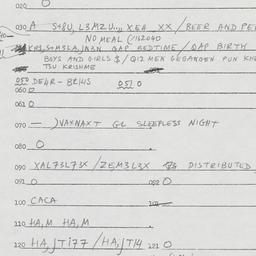 020 O
030 A S+8U, L3MZU... XEA XX / BEER AND PE
NO MEAL
GAP BEDTIME / GAP BIRTH
BOYS AND GIRLS $ / Q12 MEN GEGANGEN PUN KH
TSU KRISHME
050 DEAR - 051 O
060 O
061 O
070 — ) VAXNAXT GL SLEEPLESS NIGHT
080 O
090 XAL73L73X / ZEM3L3X DISTRIBUTED
091 O 092 O
100 CACA
110 HA,M HA,M
120 HA,JTI77 / HA,JTI4 121 O